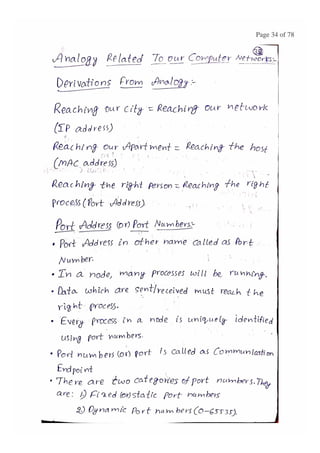 Page 34 of 78
32
Analogy Related To our Computer Networks:-
Derivations From Analogy:-
Reaching our city = Reaching our network
(IP address)
Reaching our Apartment = Reaching the host
(MAC address)
Reaching the right person = Reaching the right
process (Port Address)
Port Address (or) Port Numbers:-
• Port Address in other name called as Port
Number.
• In a node, many processes will be running.
• Data which are sent/received must reach the
right process.
• Every process in a node is uniquely identified
using port numbers.
• Port numbers (or) port is called as Communication
Endpoint
• There are two categories of port numbers. They
are: 1) Fixed (or) static port numbers
2) Dynamic Port numbers (0-65535).